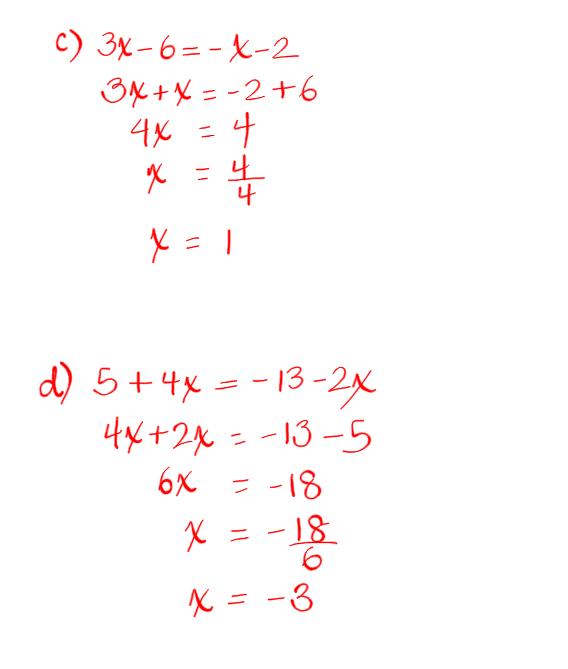 c) 3x-6=-x-2
3x+x=-2+6
4x = 4
x = 4/4
x = 1
d) 5+4x=-13-2x
4x+2x=-13-5
6x = -18
x = -18/6
x = -3